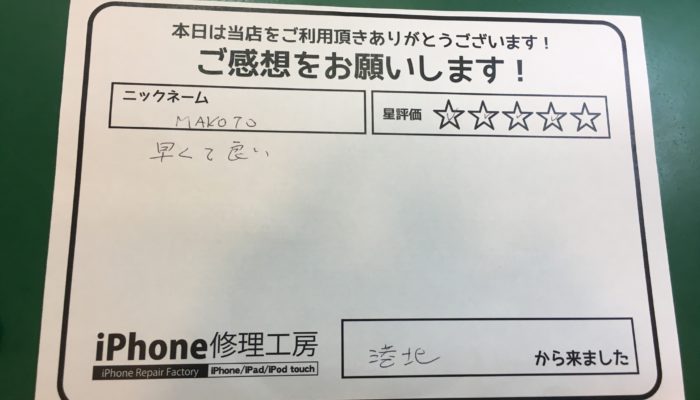 本日は当店をご利用頂きありがとうございます！
ご感想をお願いします！
ニックネーム
MAKOTO
星評価 ☆☆☆☆☆
早くて良い
iPhone修理工房
iPhone Repair Factory iPhone/iPad/iPod touch
港北 から来ました